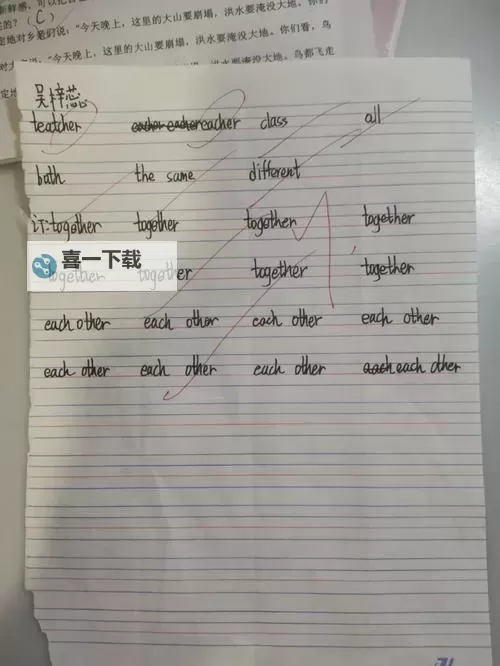 新鲜感,可以把
的?(C)
定地对乡亲们说:“今天晚上,这里的大山要崩塌,洪水要淹没大地。你们
对大家说:“今天晚上,这里的大山要崩塌,洪水要淹没大地。你们看,鸟
洪水要淹没大地。鸟都飞走
吴梓蕊
teatcher eacher eacher eacher class all
bath the same different
订:together together together together
together together together together
喜一下载
each other each other each other each other
each other each other each other each each other